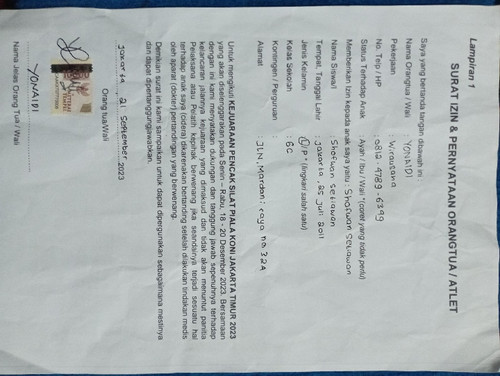 Lampiran 1
SURAT IZIN & PERNYATAAN ORANGTUA / ATLET
Saya yang bertanda tangan dibawah ini
Nama Orangtua / Wali : YONAIDI
Pekerjaan : Wirausaha
No. Telp / HP : 0812-4789-6395
Status Terhadap Anak : Ayah / Ibu / Wali *(coret yang tidak perlu)
Memberikan Izin kepada anak saya yaitu : Shofwan Setiawan
Nama Siswa/i : Shofwan Setiawan
Tempat, Tanggal Lahir : Jakarta, 25 Juli 2011
Jenis Kelamin : L/P * (lingkari salah satu)
Kelas Sekolah : 6C
Kontingen / Perguruan :
Alamat : JLN. Mardani raya no 32A
Untuk mengikuti KEJUARAAN PENCAK SILAT PIALA KONI JAKARTA TIMUR 2023
yang akan diselenggarakan pada Senin – Rabu, 18 – 20 Desember 2023. Bersamaan
dengan ini kami menyatakan dukungan dan tanggung jawab sepenuhnya terhadap
kelancaran jalannya kejuaraan yang dimaksud dan tidak akan menuntut panitia
Pelaksana atau Pelatih kepihak berwenang jika seandainya terjadi sesuatu hal
terhadap anak saya (cidera) dikarenakan bertanding setelah dilakukan tindakan medis
oleh aparat (dokter) pertandingan yang berwenang.
Demikian surat ini kami sampaikan untuk dapat dipergunakan sebagaimana mestinya
dan dapat dipertanggungjawabkan.
Jakarta, 21 September 2023
Orang tua/Wali
YONAIDI
Nama Jelas Orang Tua / Wali